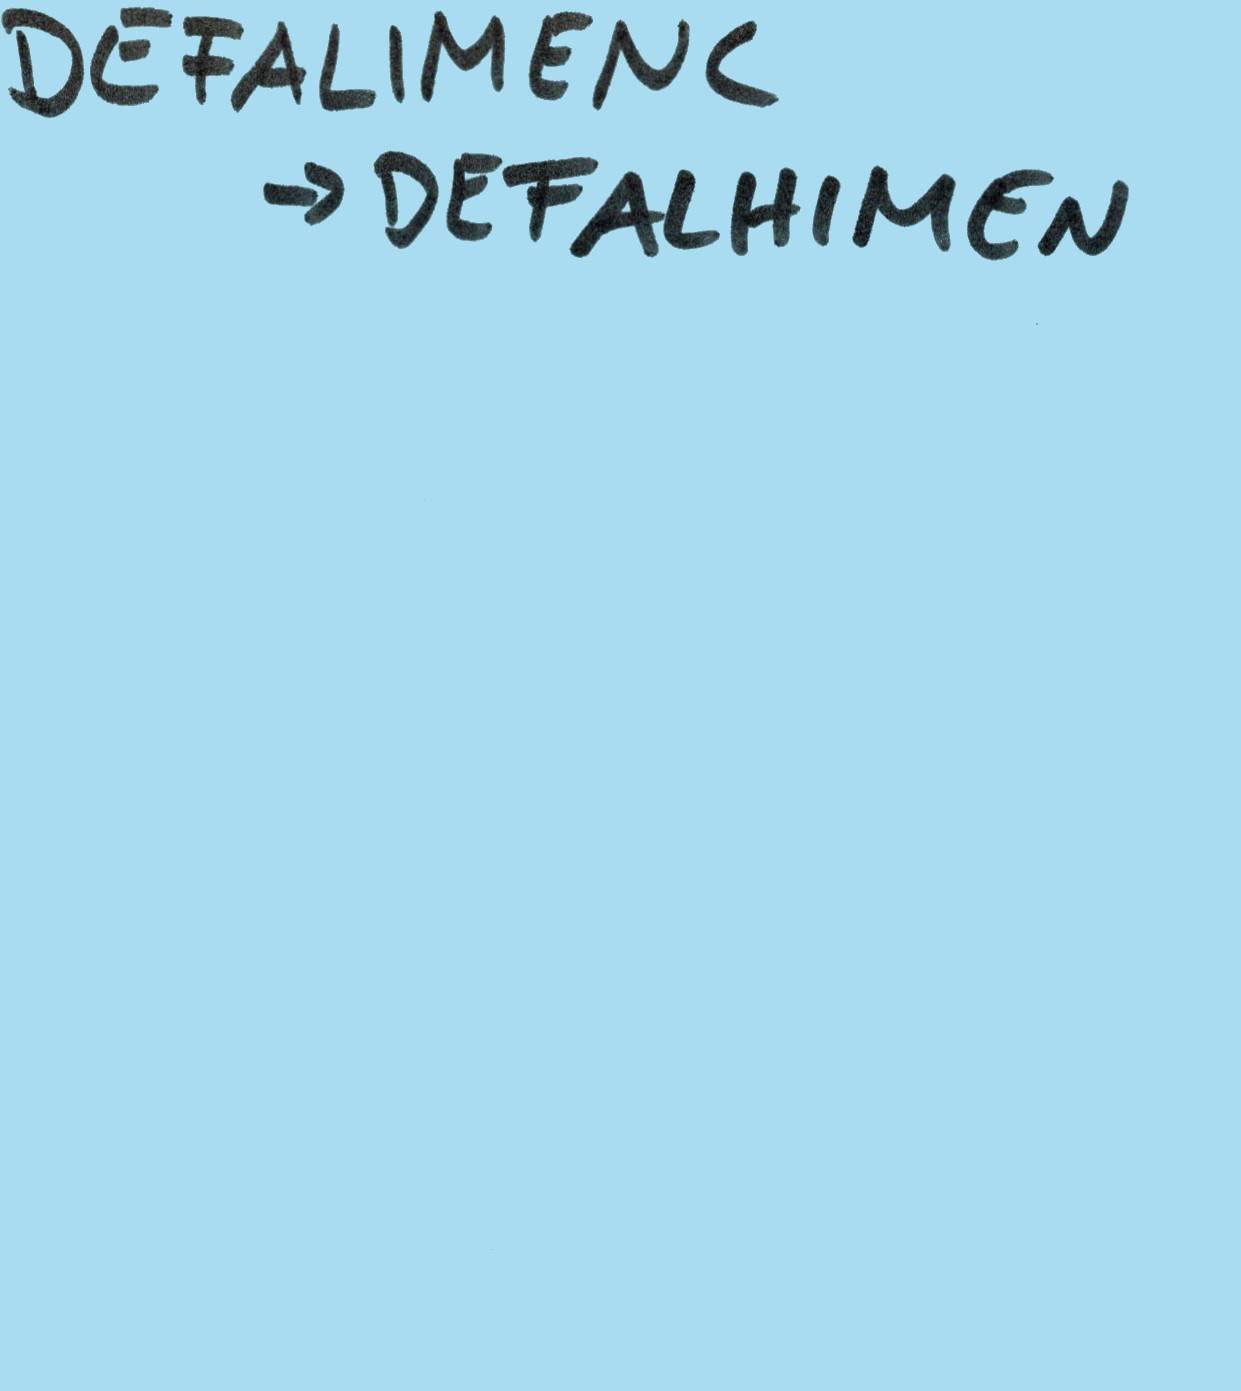 DEFALIMENC
→ DEFALHIMEN